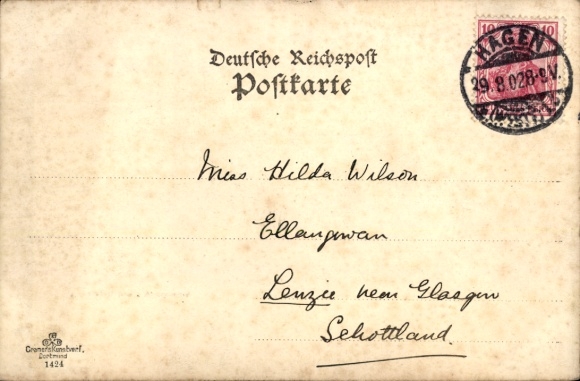 10 10
HAGEN
29.8.02 8-9V.
(WESTF.)
Deutsche Reichspost
Postkarte
Miss Hilda Wilson
Ellangowan
Lenzie near Glasgow
Schottland.
Dortmund
1424